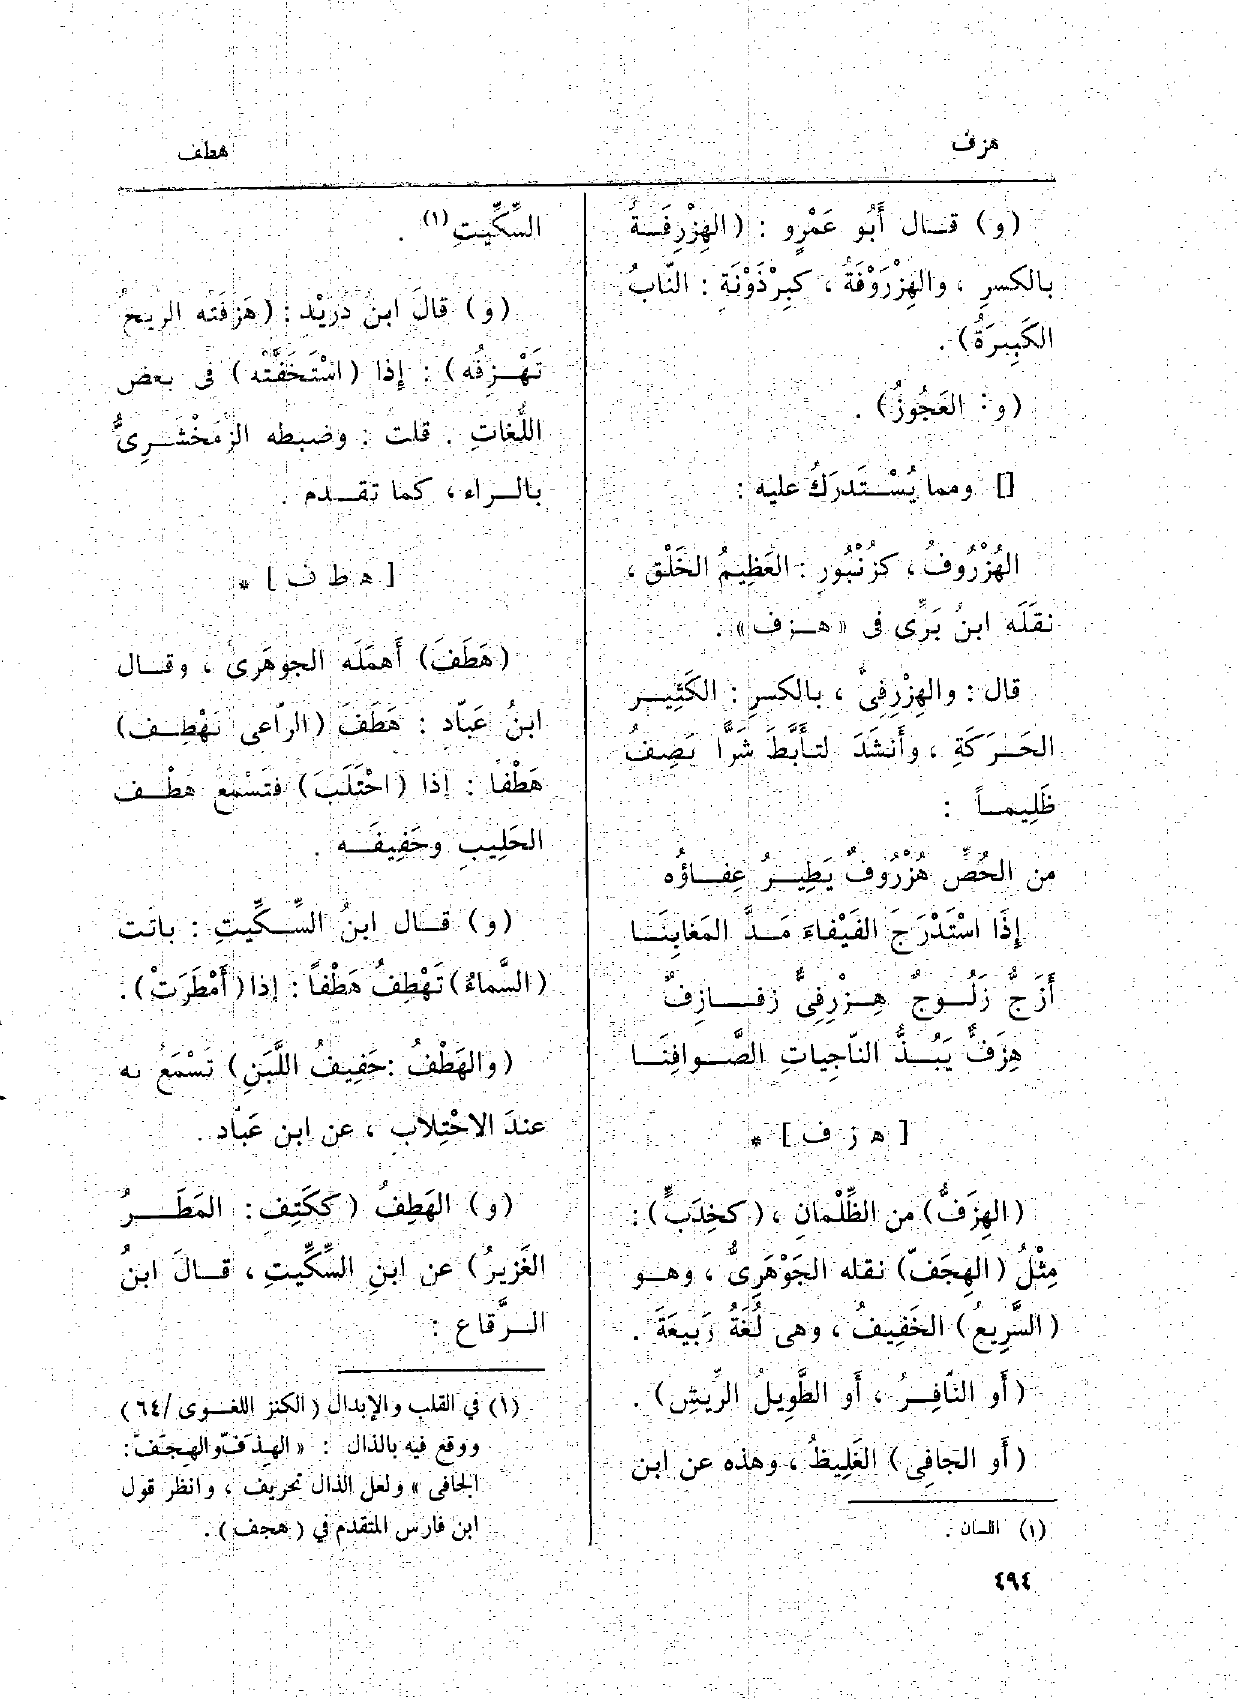 هزف
هطف
(و) قــال أَبُو عَمْرٍو : (الهِزْرِفَــةُ
بالكسرِ ، والهِزْرَوْفَةُ ، كبِرْذَوْنَةِ : النَّابُ
الكَبِيرَةُ) .
(و : العَجُوزُ) .
[] ومما يُسْــتَدرَكُ عليه :
الهُزْرُوفُ ، كزُنْبُورٍ : العَظِيمُ الخَلْقِ ،
نقَلَه ابنُ بَرِّى فى «هــزف» .
قال : والهِزْرِفِىُّ ، بالكسرِ : الكَثِيــر
الحَــرَكَةِ ، وأَنشَدَ لتأَبَّطَ شَرًّا يَصِفُ
ظَلِيمــاً :
من الحُصِّ هُزْرُوفٌ يَطِيــرُ عِفــاؤُه
إِذَا اسْتَدْرَجَ الفَيْفاءَ مَــدَّ المَغابِنَــا
أَزَجُّ زَلُــوجٌ هِــزْرِفِىٌّ زفــازِفٌ
هِزَفٌّ يَبُــذُّ النّاجِياتِ الصَّوافِنَــا
[ ه ز ف ] *
(الهِزَفُّ) من الظِّلْمانِ ، (كخِدَبٍّ) :
مِثْلُ (الهِجَفّ) نقله الجَوْهَرِىُّ ، وهــو
(السَّرِيعُ) الخَفِيفُ ، وهى لُغَةُ رَبِيعَةَ .
(أَو النّافِــرُ ، أَو الطَّوِيلُ الرِّيشِ) .
(أَو الجافِى) الغَلِيظُ ، وهذه عن ابن
(١) اللسان .
السِّكِّيتِ(١) .
(و) قالَ ابنُ دُرَيْد : (هَزَفَتْه الريحُ
تَهْــزِفُه) : إِذا (اسْتَخَفَّتْه) فى بعض
اللُّغاتِ . قلت : وضبطه الزَّمَخْشَــرِىُّ
بالــراء ، كما تقــدم .
[ ه ط ف ] *
(هَطَفَ) أَهملَه الجوهَرِىُّ ، وقــال
ابنُ عَبّاد : هَطَفَ (الرّاعى يَهْطِــف)
هَطْفا : إذا (احْتَلَبَ) فتَسْمَع هَطْــف
الحَلِيبِ وحَفِيفَــه .
(و) قــال ابنُ السِّــكِّيتِ : باتَت
(السَّماءُ) تَهْطِفُ هَطْفاً : إِذا (أَمْطَرَتْ) .
(والهَطْفُ : حَفِيفُ اللَّبَنِ) تَسْمَعُ به
عندَ الاحْتِلابِ ، عن ابن عَبّاد .
(و) الهَطِفُ (ككَتِفٍ : المَطَــرُ
الغَزِيرُ) عن ابنِ السِّكِّيتِ ، قــالَ ابنُ
الــرِّقاعِ :
(١) في القلب والإبدال (الكنز اللغــوى /٦٤)
ووقع فيه بالذال : «الهِذَفّ والهِجَفّ :
الجافى» ولعل الذال تحريف ، وانظر قول
ابن فارس المتقدم في (هجف) .
٤٩٤